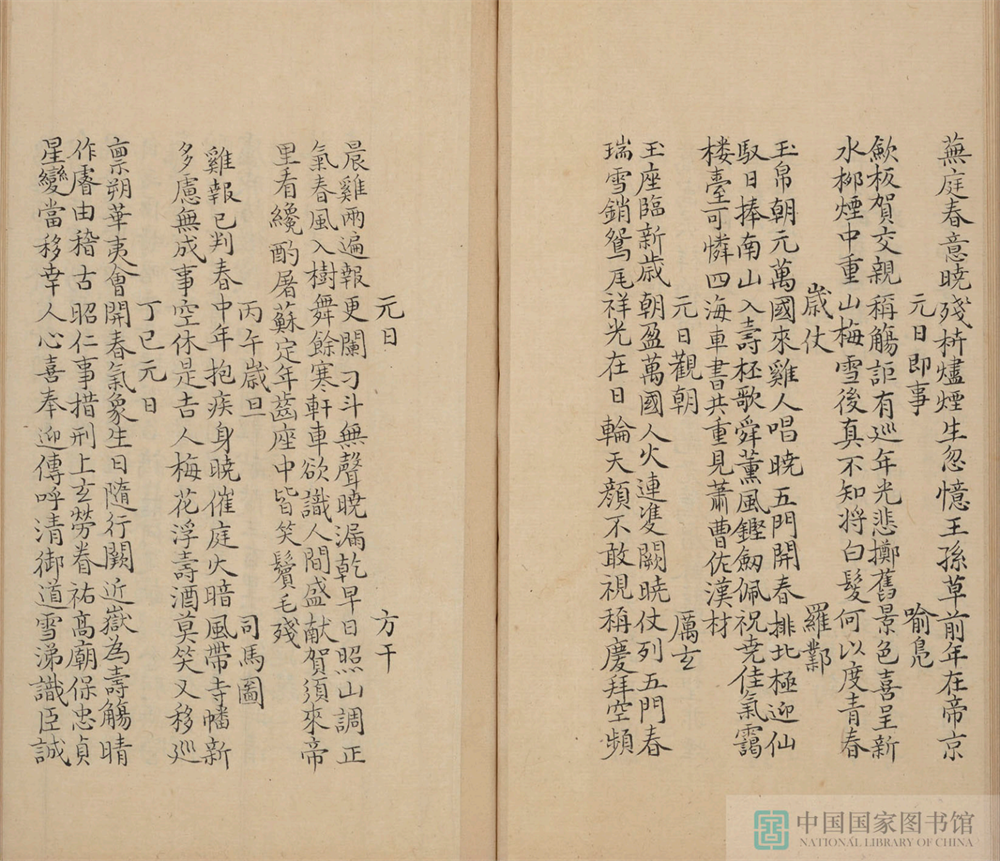 蕪庭春意曉殘枿燼煙生忽憶王孫草前年在帝京
元日即事 喻鳧
歛板賀交親稱觴詎有巡年光悲擲舊景色喜呈新
水柳煙中重山梅雪後真不知將白髮何以度青春
歲仗 羅鄴
玉帛朝元萬國來雞人唱曉五門開春排北極迎仙
馭日捧南山入壽杯歌舜薰風鏗劒佩祝堯佳氣靄
楼臺可憐四海車書共重見蕭曹佐漢材
元日觀朝 厲玄
玉座臨新歲朝盈萬國人火連䨇闕曉仗列五門春
瑞雪銷鴛尾祥光在日輪天顔不敢視稱慶拜空頻
元日 方干
晨雞兩遍報更闌刁斗無聲曉漏乾早日照山調正
氣春風入樹舞餘寒軒車欲識人間盛献賀須來帝
里看纔酌屠蘇定年齒座中皆笑鬢毛殘
丙午歲旦 司馬圖
雞報已判春中年抱疾身曉催庭火暗風帶寺幡新
多慮無成事空休是吉人梅花浮壽酒莫笑又移巡
丁巳元日
禀朔華夷會開春氣象生日隨行闕近嶽為壽觴晴
作睿由稽古昭仁事措刑上玄勞眷祐高廟保忠貞
星變當移幸人心喜奉迎傳呼清御道雪涕識臣誠
中国国家图书馆
NATIONAL LIBRARY OF CHINA